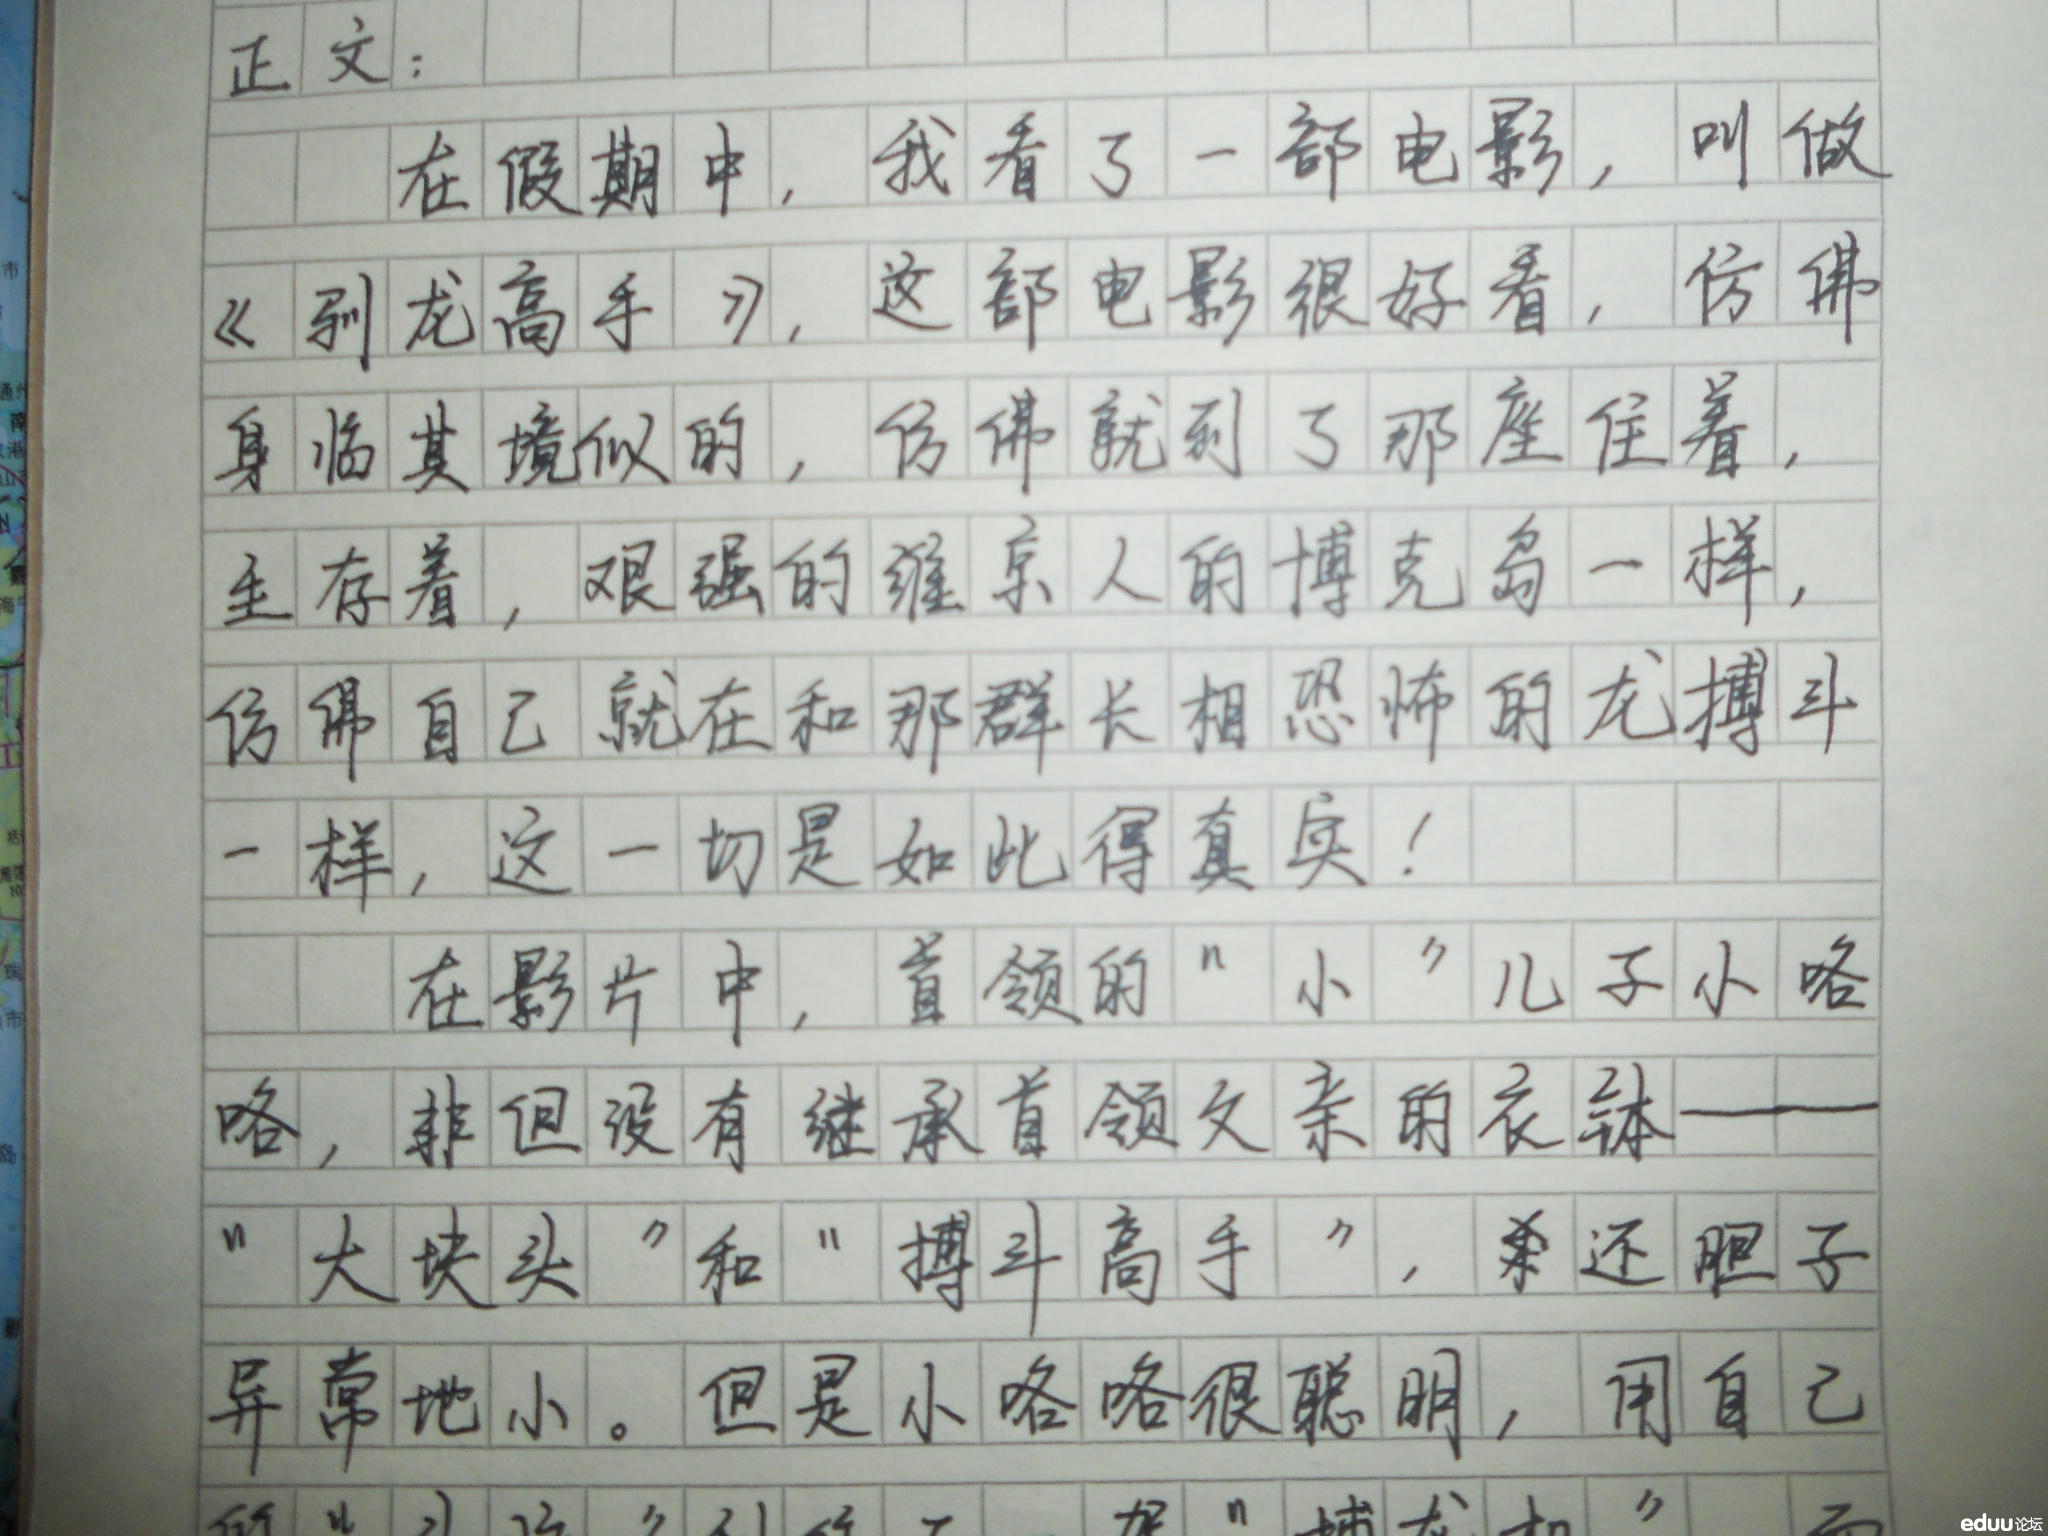 正文：
在假期中，我看了一部电影，叫做
《驯龙高手》，这部电影很好看，仿佛
身临其境似的，仿佛就到了那座住着，
生存着，艰强的维京人的博克岛一样，
仿佛自己就在和那群长相恐怖的龙搏斗
一样，这一切是如此得真实！
在影片中，首领的“小”儿子小咯
咯，非但没有继承首领父亲的衣钵——
“大块头”和“搏斗高手”，还胆子
异常地小。但是小咯咯很聪明，用自己
eduu论坛